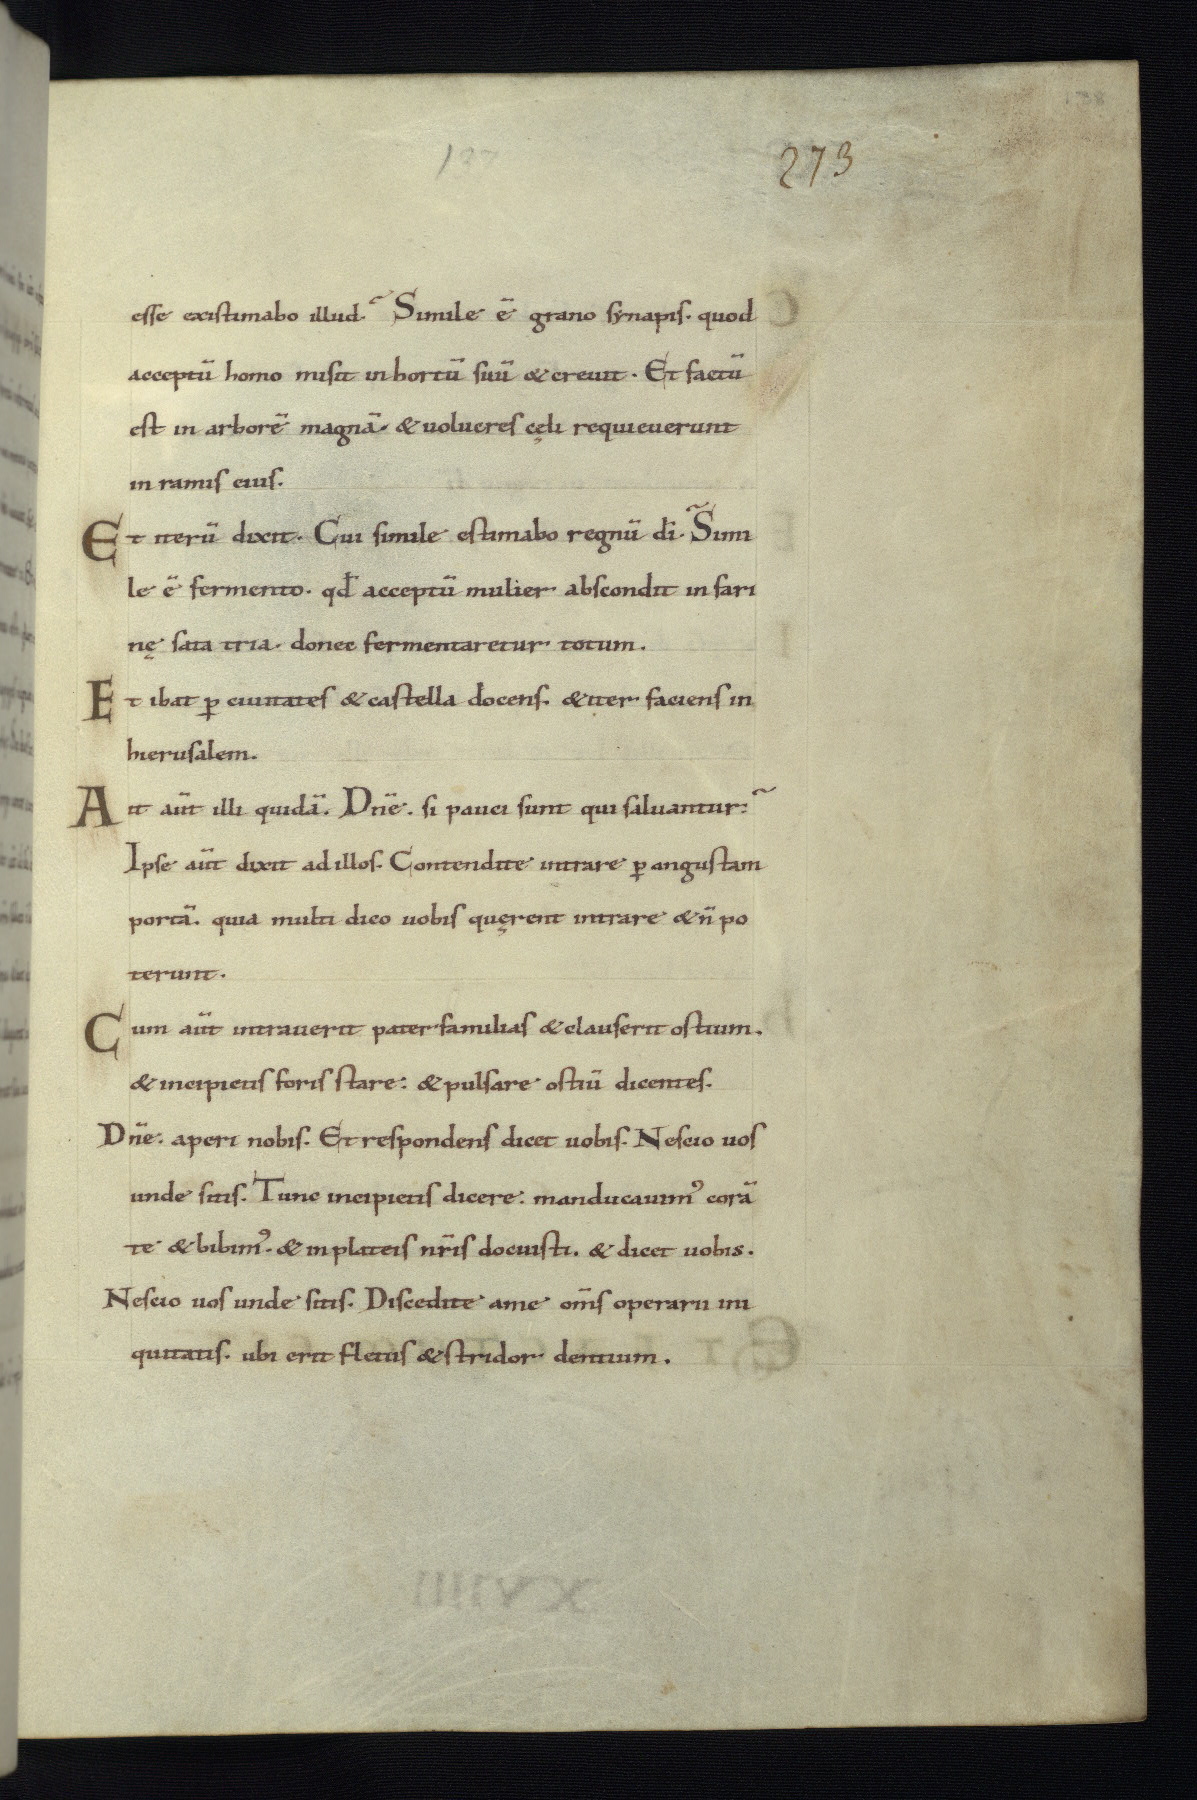 273
esse existimabo illud. Simile ē grano synapis. quod
acceptū homo misit in hortū suū & creuit. Et factū
est in arborē magnā. & uolucres cęli requieuerunt
in ramis eius.
Et iterū dixit. Cui simile estimabo regnū dī. Simi
le ē fermento. qđ acceptū mulier abscondit in fari
nę sata tria. donec fermentaretur totum.
Et ibat ꝑ ciuitates & castella docens. & iter faciens in
hierusalem.
Ait aūt illi quidā. Dn̄e. si pauci sunt qui saluantur:
Ipse aūt dixit ad illos. Contendite intrare ꝑ angustam
portā. quia multi dico uobis quęrent intrare & n̄ po
terunt.
Cum aūt intrauerit pater familias & clauserit ostium.
& incipietis foris stare: & pulsare ostiū dicentes.
Dn̄e: aperi nobis. Et respondens dicet uobis. Nescio uos
unde sitis. Tunc incipietis dicere: manducauimꝰ corā
te & bibimꝰ. & in plateis nr̄is docuisti. & dicet uobis.
Nescio uos unde sitis. Discedite a me om̄s operarii ini
quitatis. ubi erit fletus & stridor dentium.